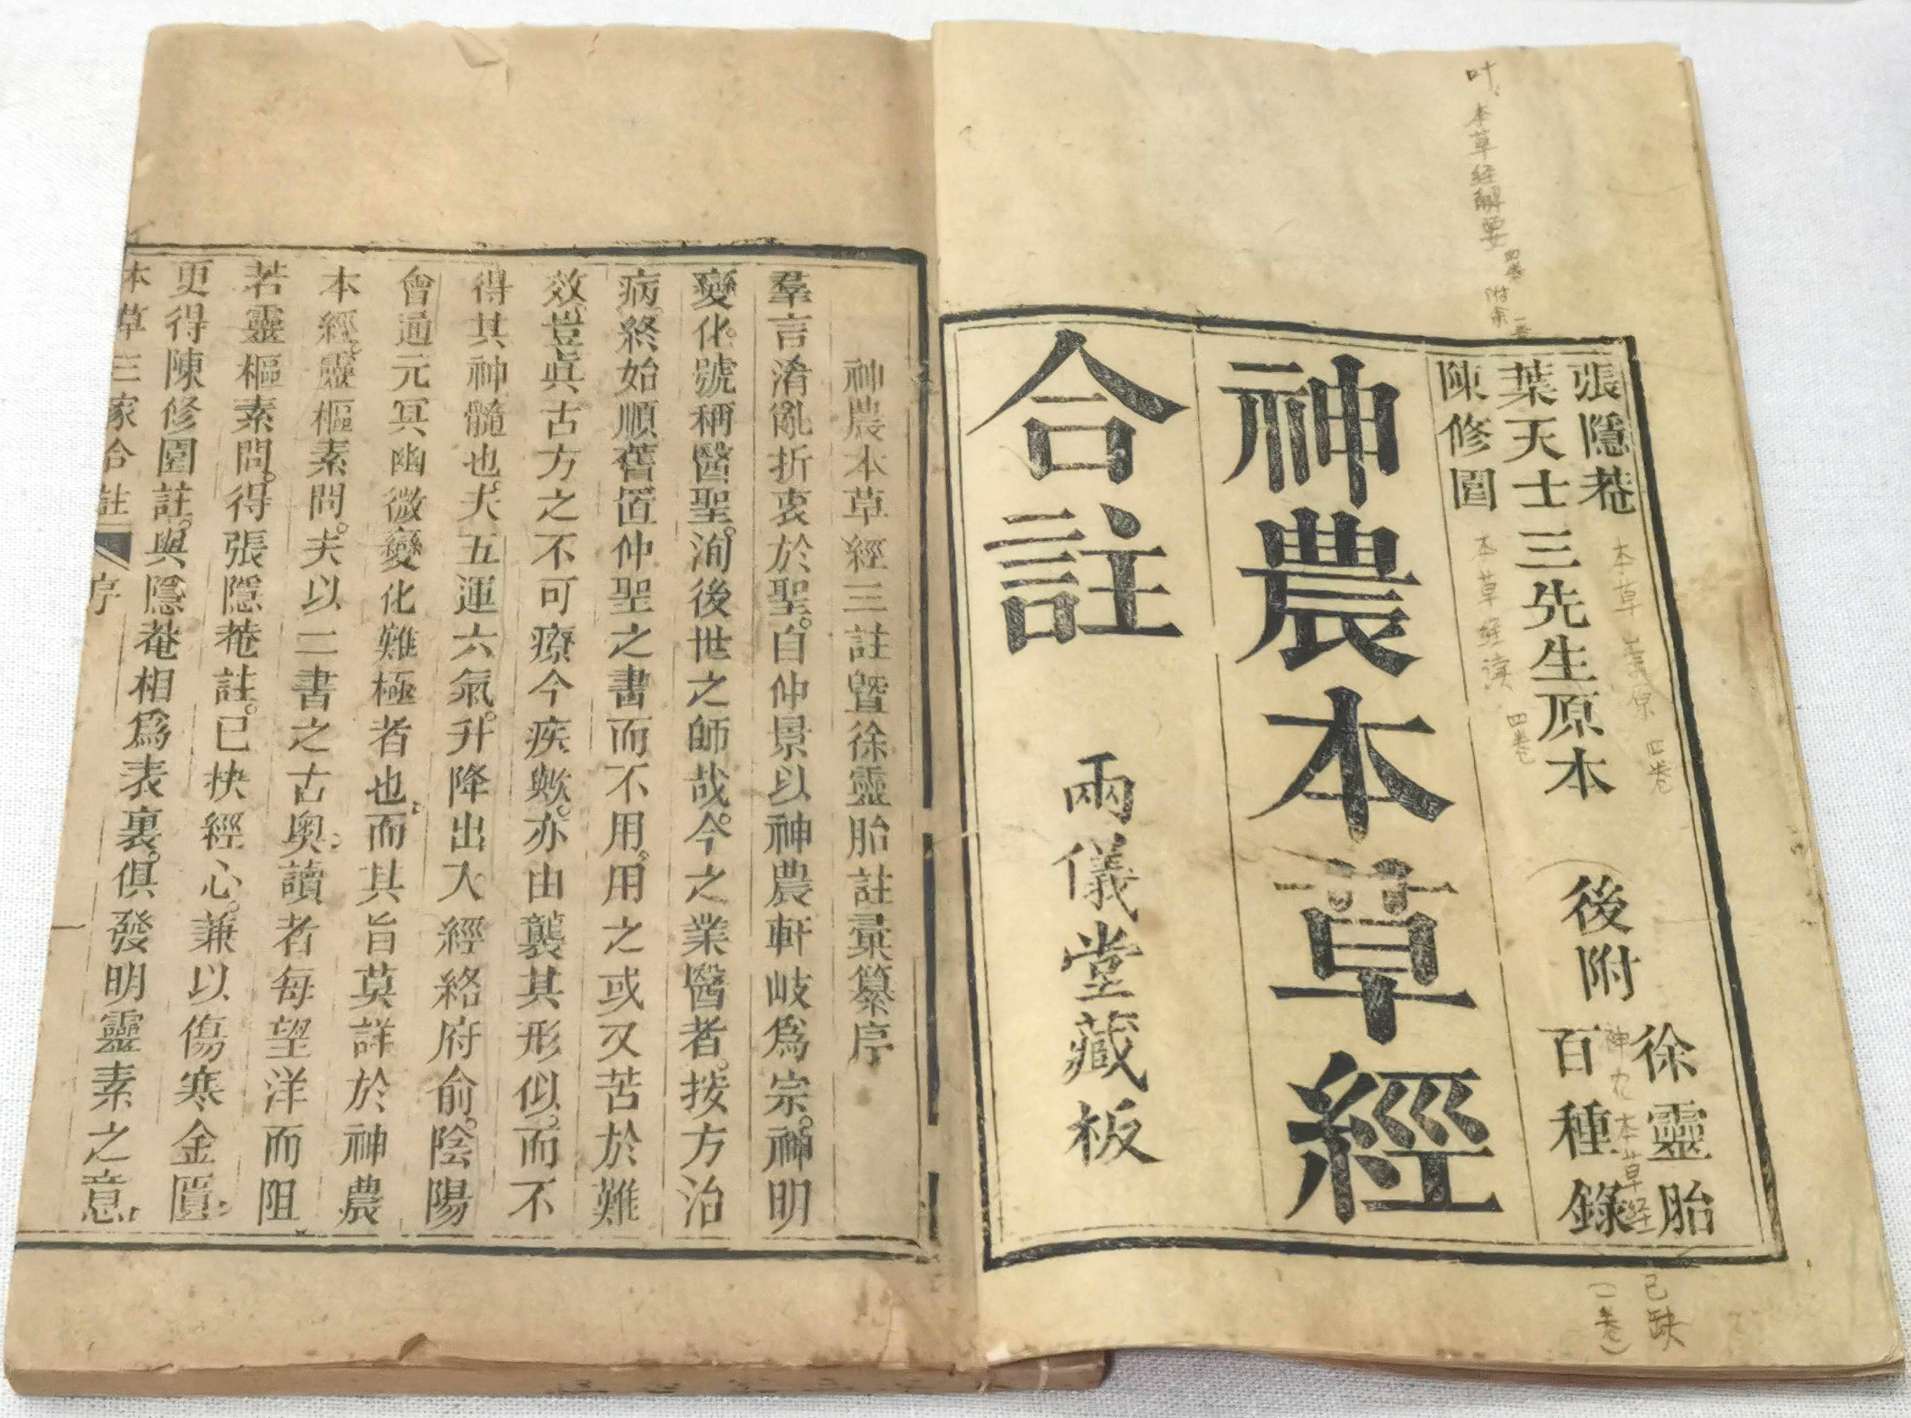 張隱菴
葉天士三先生原本
陳修園
後附
徐靈胎
百種錄
神農本草經
合註
兩儀堂藏板
叶 本草经解要 四卷 附余 一卷
本草崇原 四卷
本草经读 四卷
神农本草经
已缺
(一卷)
神農本草經三註曁徐靈胎註彙纂序
羣言淆亂折衷於聖。自仲景以神農軒岐爲宗。神明
變化。號稱醫聖。洵後世之師哉。今之業醫者。按方治
病。終始順舊。置仲聖之書而不用。用之或又苦於難
效。豈眞古方之不可療今疾歟。亦由襲其形似。而不
得其神髓也。夫五運六氣。升降出入經絡府俞。陰陽
會通元冥幽微變化難極者也。而其旨莫詳於神農
本經。靈樞素問。夫以二書之古奧。讀者每望洋而阻
若靈樞素問。得張隱菴註。已抉經心。兼以傷寒金匱。
更得陳修園註。與隱菴相爲表裏。俱發明靈素之意
本草三家合註 序